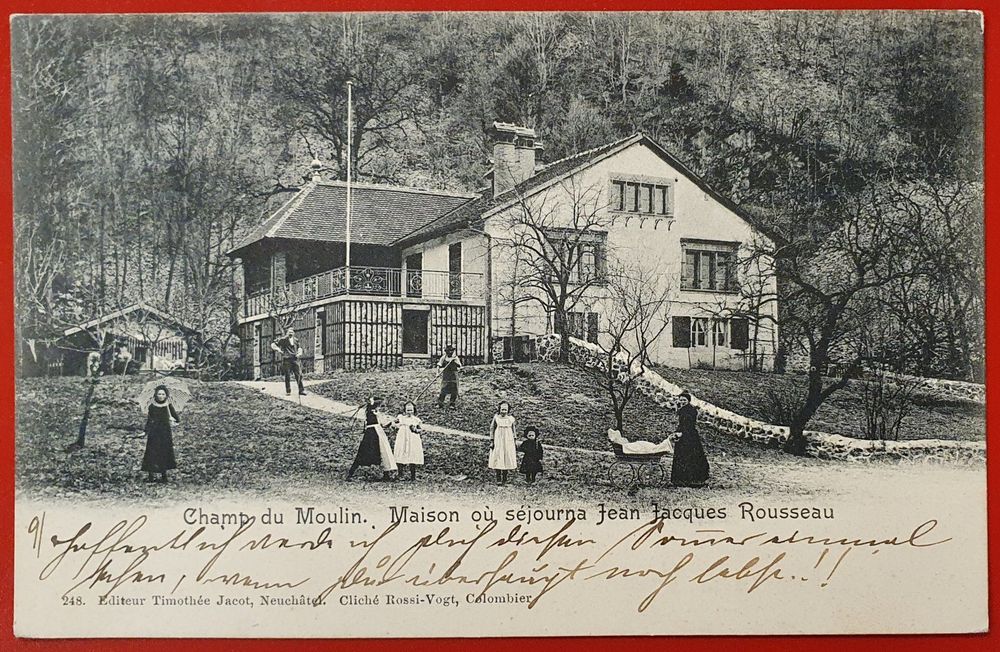 Champ du Moulin. Maison où séjourna Jean Jacques Rousseau
9/ Hoffentlich werde ich dich diesen Sommer einmal
sehen, wenn du überhaupt noch lebst..!!
248. Editeur Timothée Jacot, Neuchâtel. Cliché Rossi-Vogt, Colombier